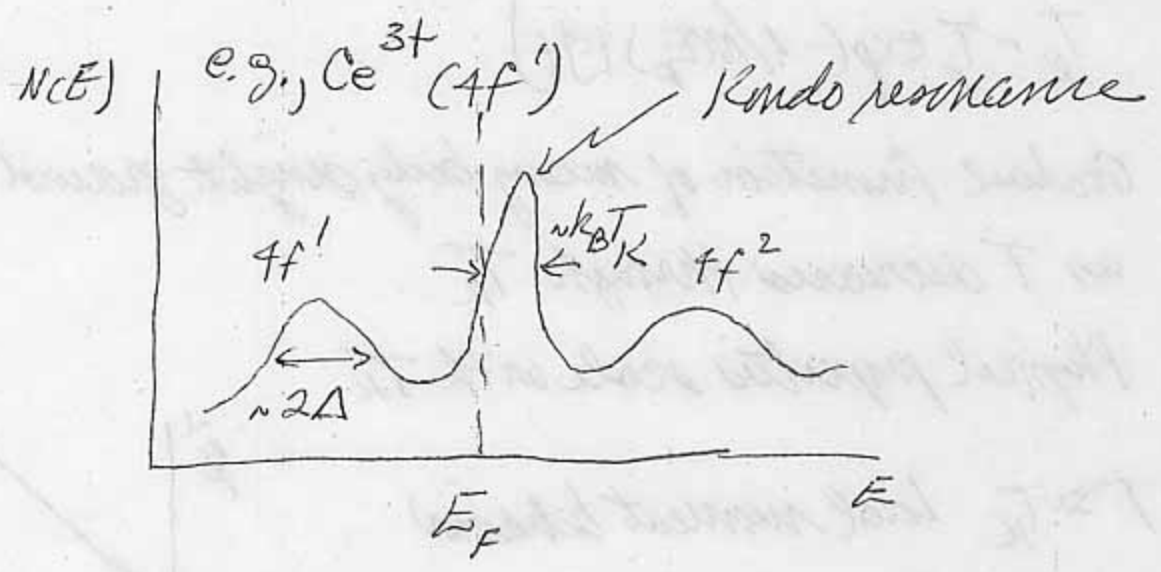 N(E)
e.g., Ce³⁺ (4f¹)
Kondo resonance
4f¹
~k_BT_K
4f²
~2Δ
E_F
E